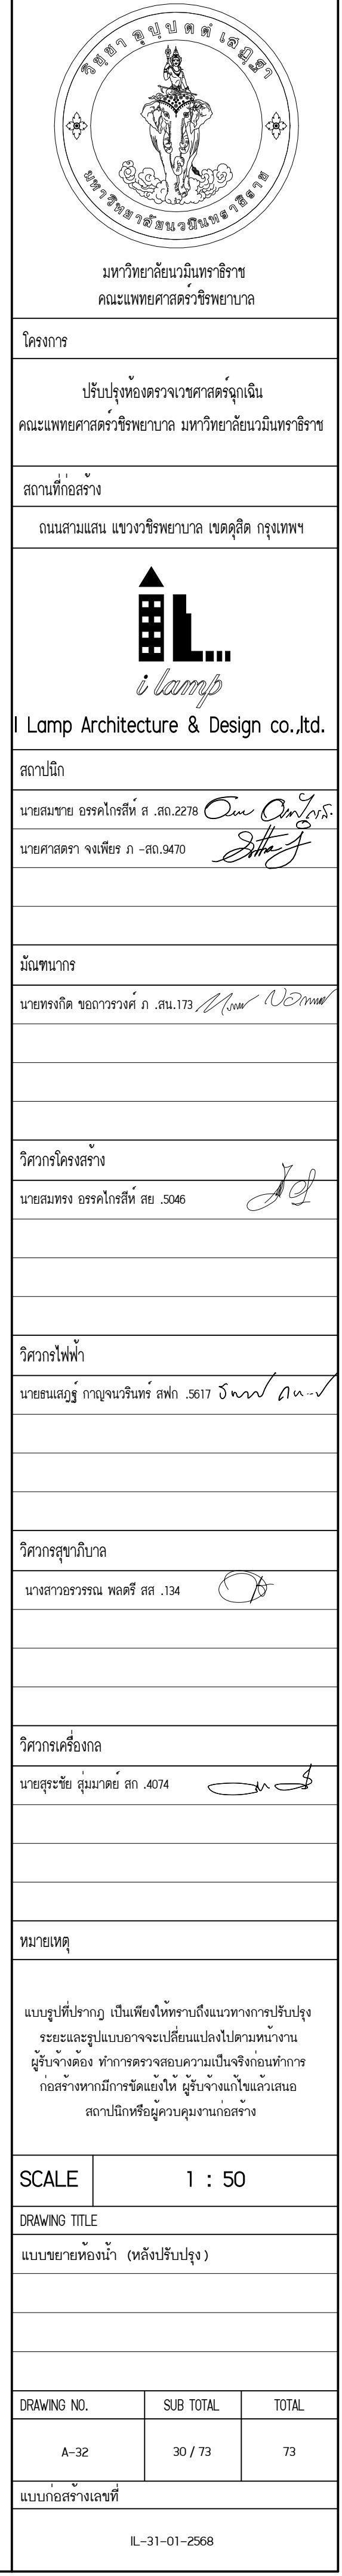 วิชฺชา อุปฺปตตํ เสฏฺฐา
มหาวิทยาลัยนวมินทราธิราช
มหาวิทยาลัยนวมินทราธิราช
คณะแพทยศาสตร์วชิรพยาบาล
โครงการ
ปรับปรุงห้องตรวจเวชศาสตร์ฉุกเฉิน
คณะแพทยศาสตร์วชิรพยาบาล มหาวิทยาลัยนวมินทราธิราช
สถานที่ก่อสร้าง
ถนนสามแสน แขวงวชิรพยาบาล เขตดุสิต กรุงเทพฯ
i lamp
I Lamp Architecture & Design co.,ltd.
สถาปนิก
นายสมชาย อรรคไกรสีห์ ส .สถ.2278
นายศาสตรา จงเพียร ภ -สถ.9470
มัณฑนากร
นายทรงกิด ขอถาวรวงศ์ ภ .สน.173
วิศวกรโครงสร้าง
นายสมทรง อรรคไกรสีห์ สย .5046
วิศวกรไฟฟ้า
นายธนเสฎฐ์ กาญจนวรินทร์ สฟก .5617
วิศวกรสุขาภิบาล
นางสาวอรวรรณ พลตรี สส .134
วิศวกรเครื่องกล
นายสุระชัย สุ่มมาตย์ สก .4074
หมายเหตุ
แบบรูปที่ปรากฎ เป็นเพียงให้ทราบถึงแนวทางการปรับปรุง
ระยะและรูปแบบอาจจะเปลี่ยนแปลงไปตามหน้างาน
ผู้รับจ้างต้อง ทำการตรวจสอบความเป็นจริงก่อนทำการ
ก่อสร้างหากมีการขัดแย้งให้ ผู้รับจ้างแก้ไขแล้วเสนอ
สถาปนิกหรือผู้ควบคุมงานก่อสร้าง
SCALE 1 : 50
DRAWING TITLE
แบบขยายห้องน้ำ (หลังปรับปรุง)
DRAWING NO. SUB TOTAL TOTAL
A-32 30 / 73 73
แบบก่อสร้างเลขที่
IL-31-01-2568